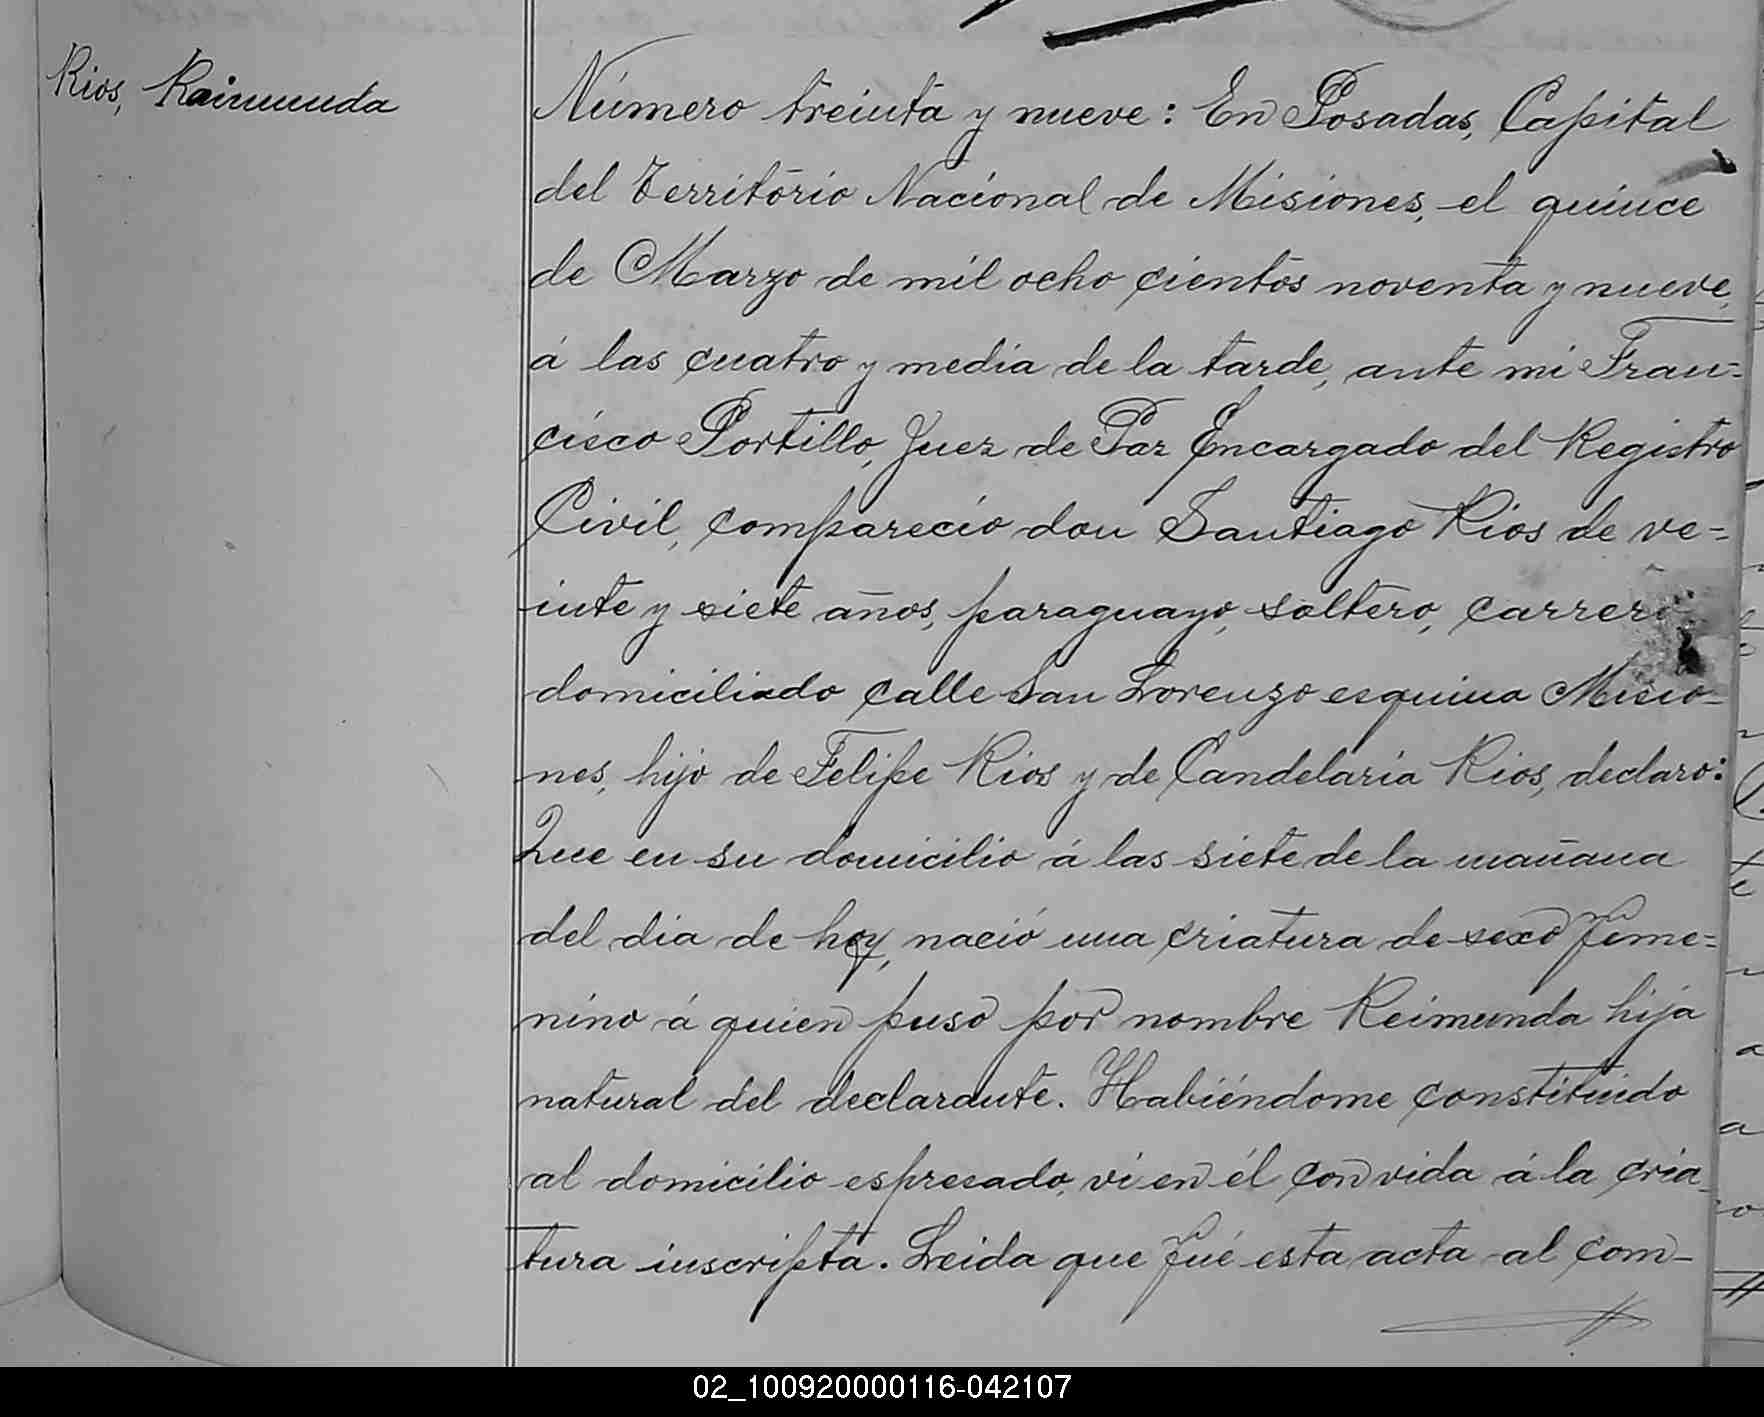 Rios, Raimunda
Número treinta y nueve: En Posadas, Capital
del Território Nacional de Misiones, el quince
de Marzo de mil ocho cientos noventa y nueve,
á las cuatro y media de la tarde, ante mi Fran=
cisco Portillo, Juez de Paz Encargado del Registro
Civil, compareció don Santiago Rios de ve=
inte y siete años, paraguayo, soltero, carrero
domiciliado calle San Lorenzo esquina Misio-
nes, hijo de Felipe Rios y de Candelaria Rios, declaro:
Que en su domicilio á las siete de la mañana
del dia de hoy, nació una criatura de sexo feme=
nino á quien puso por nombre Reimunda hija
natural del declarante. Habiéndome constituido
al domicilio espresado, vi en él con vida á la cria-
tura inscripta. Leida que fué esta acta al com-
02_100920000116-042107